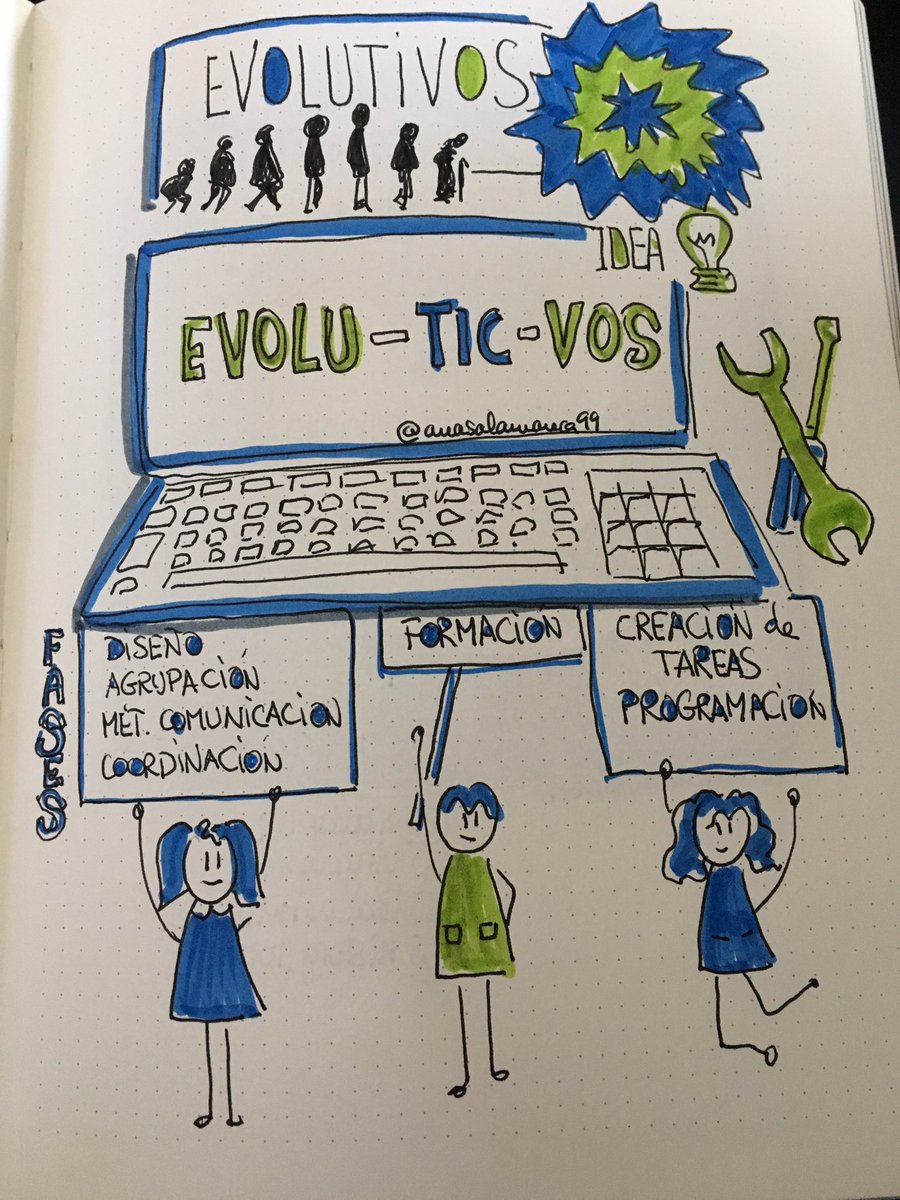 EVOLUTIVOS
IDEA
EVOLU-TIC-VOS
@anasalamanca99
FASES
DISEÑO
AGRUPACIÓN
MÉT. COMUNICACIÓN
COORDINACIÓN
FORMACIÓN
CREACIÓN de
TAREAS
PROGRAMACIÓN